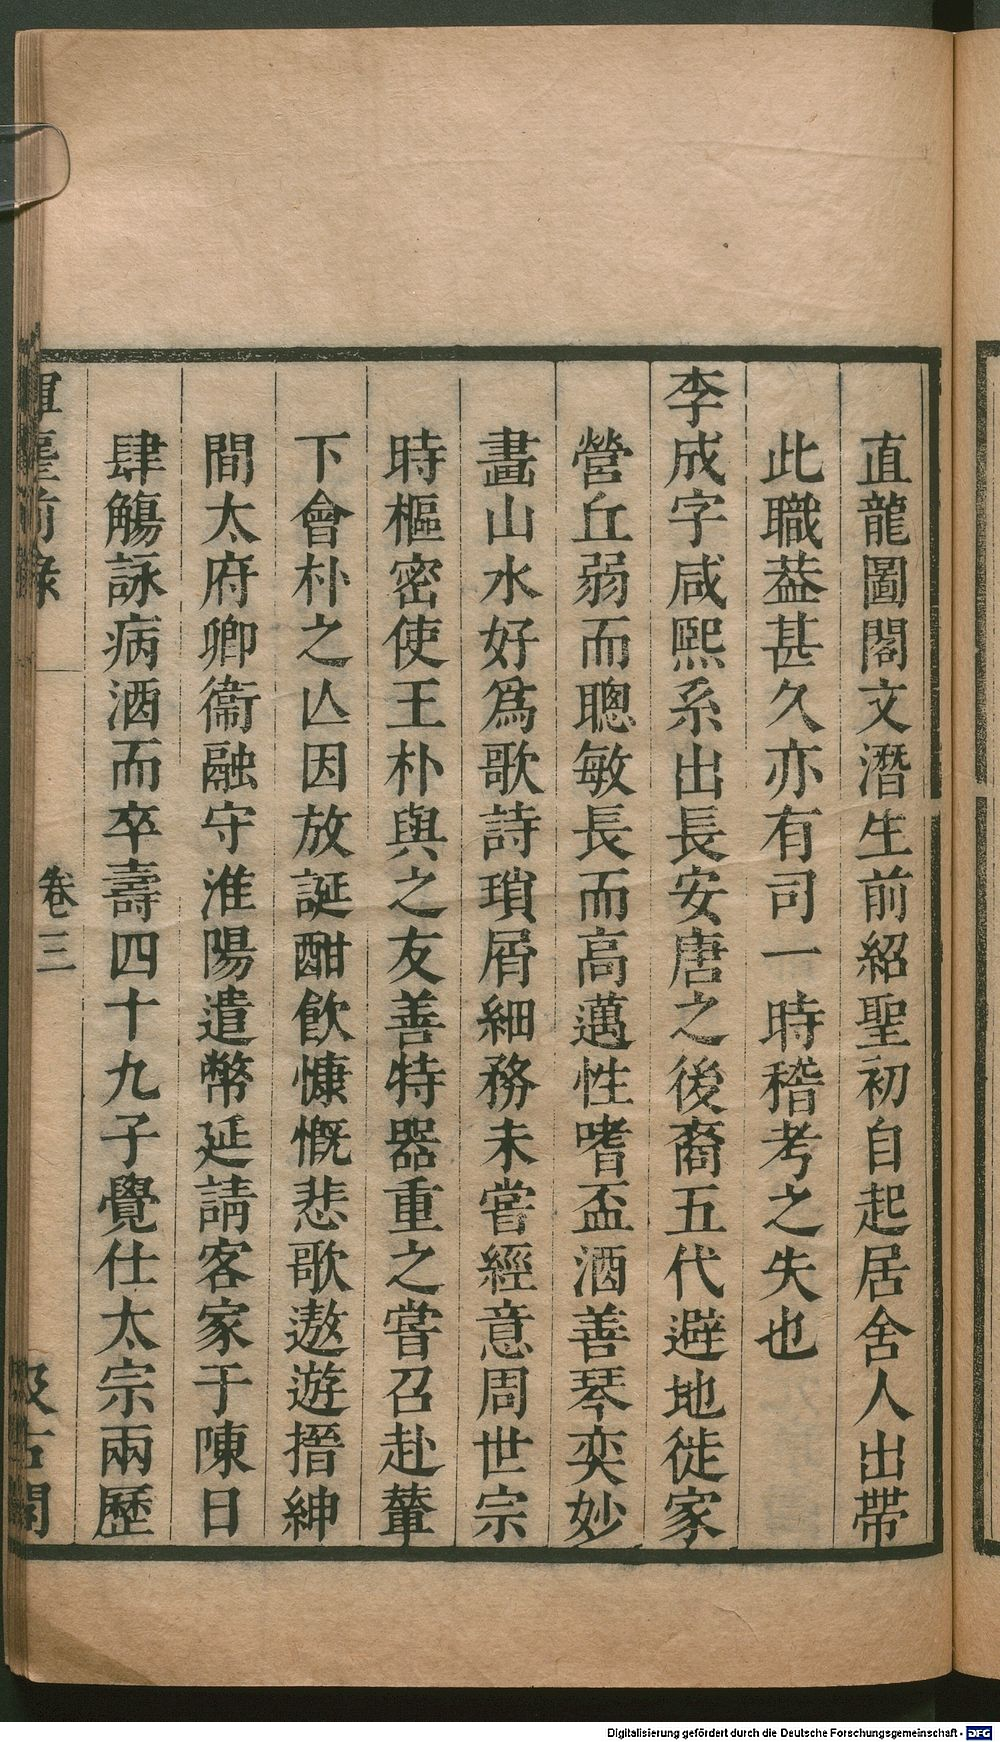 直龍圖閣文潛生前紹聖初自起居舍人出帶
此職葢甚久亦有司一時稽考之失也
李成字咸熙系出長安唐之後裔五代避地徙家
營丘弱而聰敏長而高邁性嗜盃酒善琴奕妙
畫山水好爲歌詩瑣屑細務未嘗經意周世宗
時樞密使王朴與之友善特器重之嘗召赴輦
下會朴之亾因放誕酣飮慷慨悲歌遨遊搢紳
間太府卿衞融守淮陽遣幣延請客家于陳日
肆觴詠病酒而卒壽四十九子覺仕太宗兩歷
揮麈前錄
卷三
汲古閣
Digitalisierung gefördert durch die Deutsche Forschungsgemeinschaft - DFG